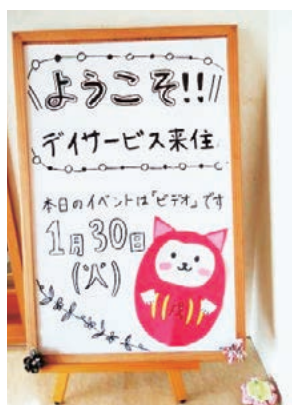 ようこそ!!
デイサービス来住
本日のイベントは「ビデオ」です
1月30日
(火)
戌